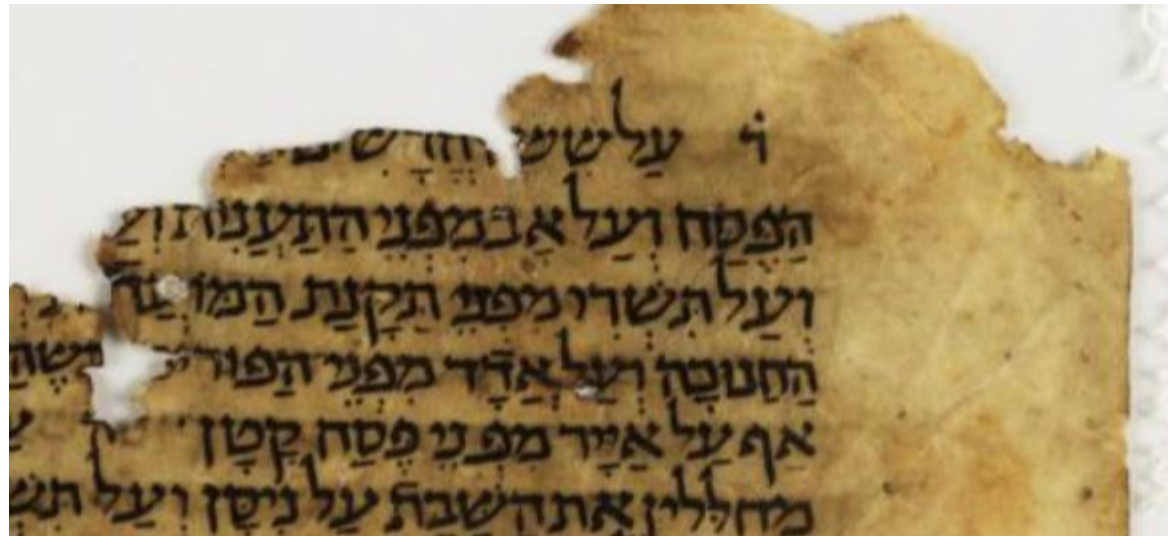 ו עַל שִׁשָּׁה חֳדָשִׁים
הַפֶּסַח וְעַל אָב מִפְּנֵי הַתַּעֲנִית וְעַ
וְעַל תִּשְׁרִי מִפְּנֵי תַּקָּנַת הַמּוֹעֲד
הַחֲנוּכָּה וְעַל אֲדָר מִפְּנֵי הַפּוּרִי ושֶׁהָ
אַף עַל אִיָּיר מִפְּנֵי פֶּסַח קָטָן
מחלּלין אֶת השַׁבת עַל נִיסָן וְעַל תִּשְׁ